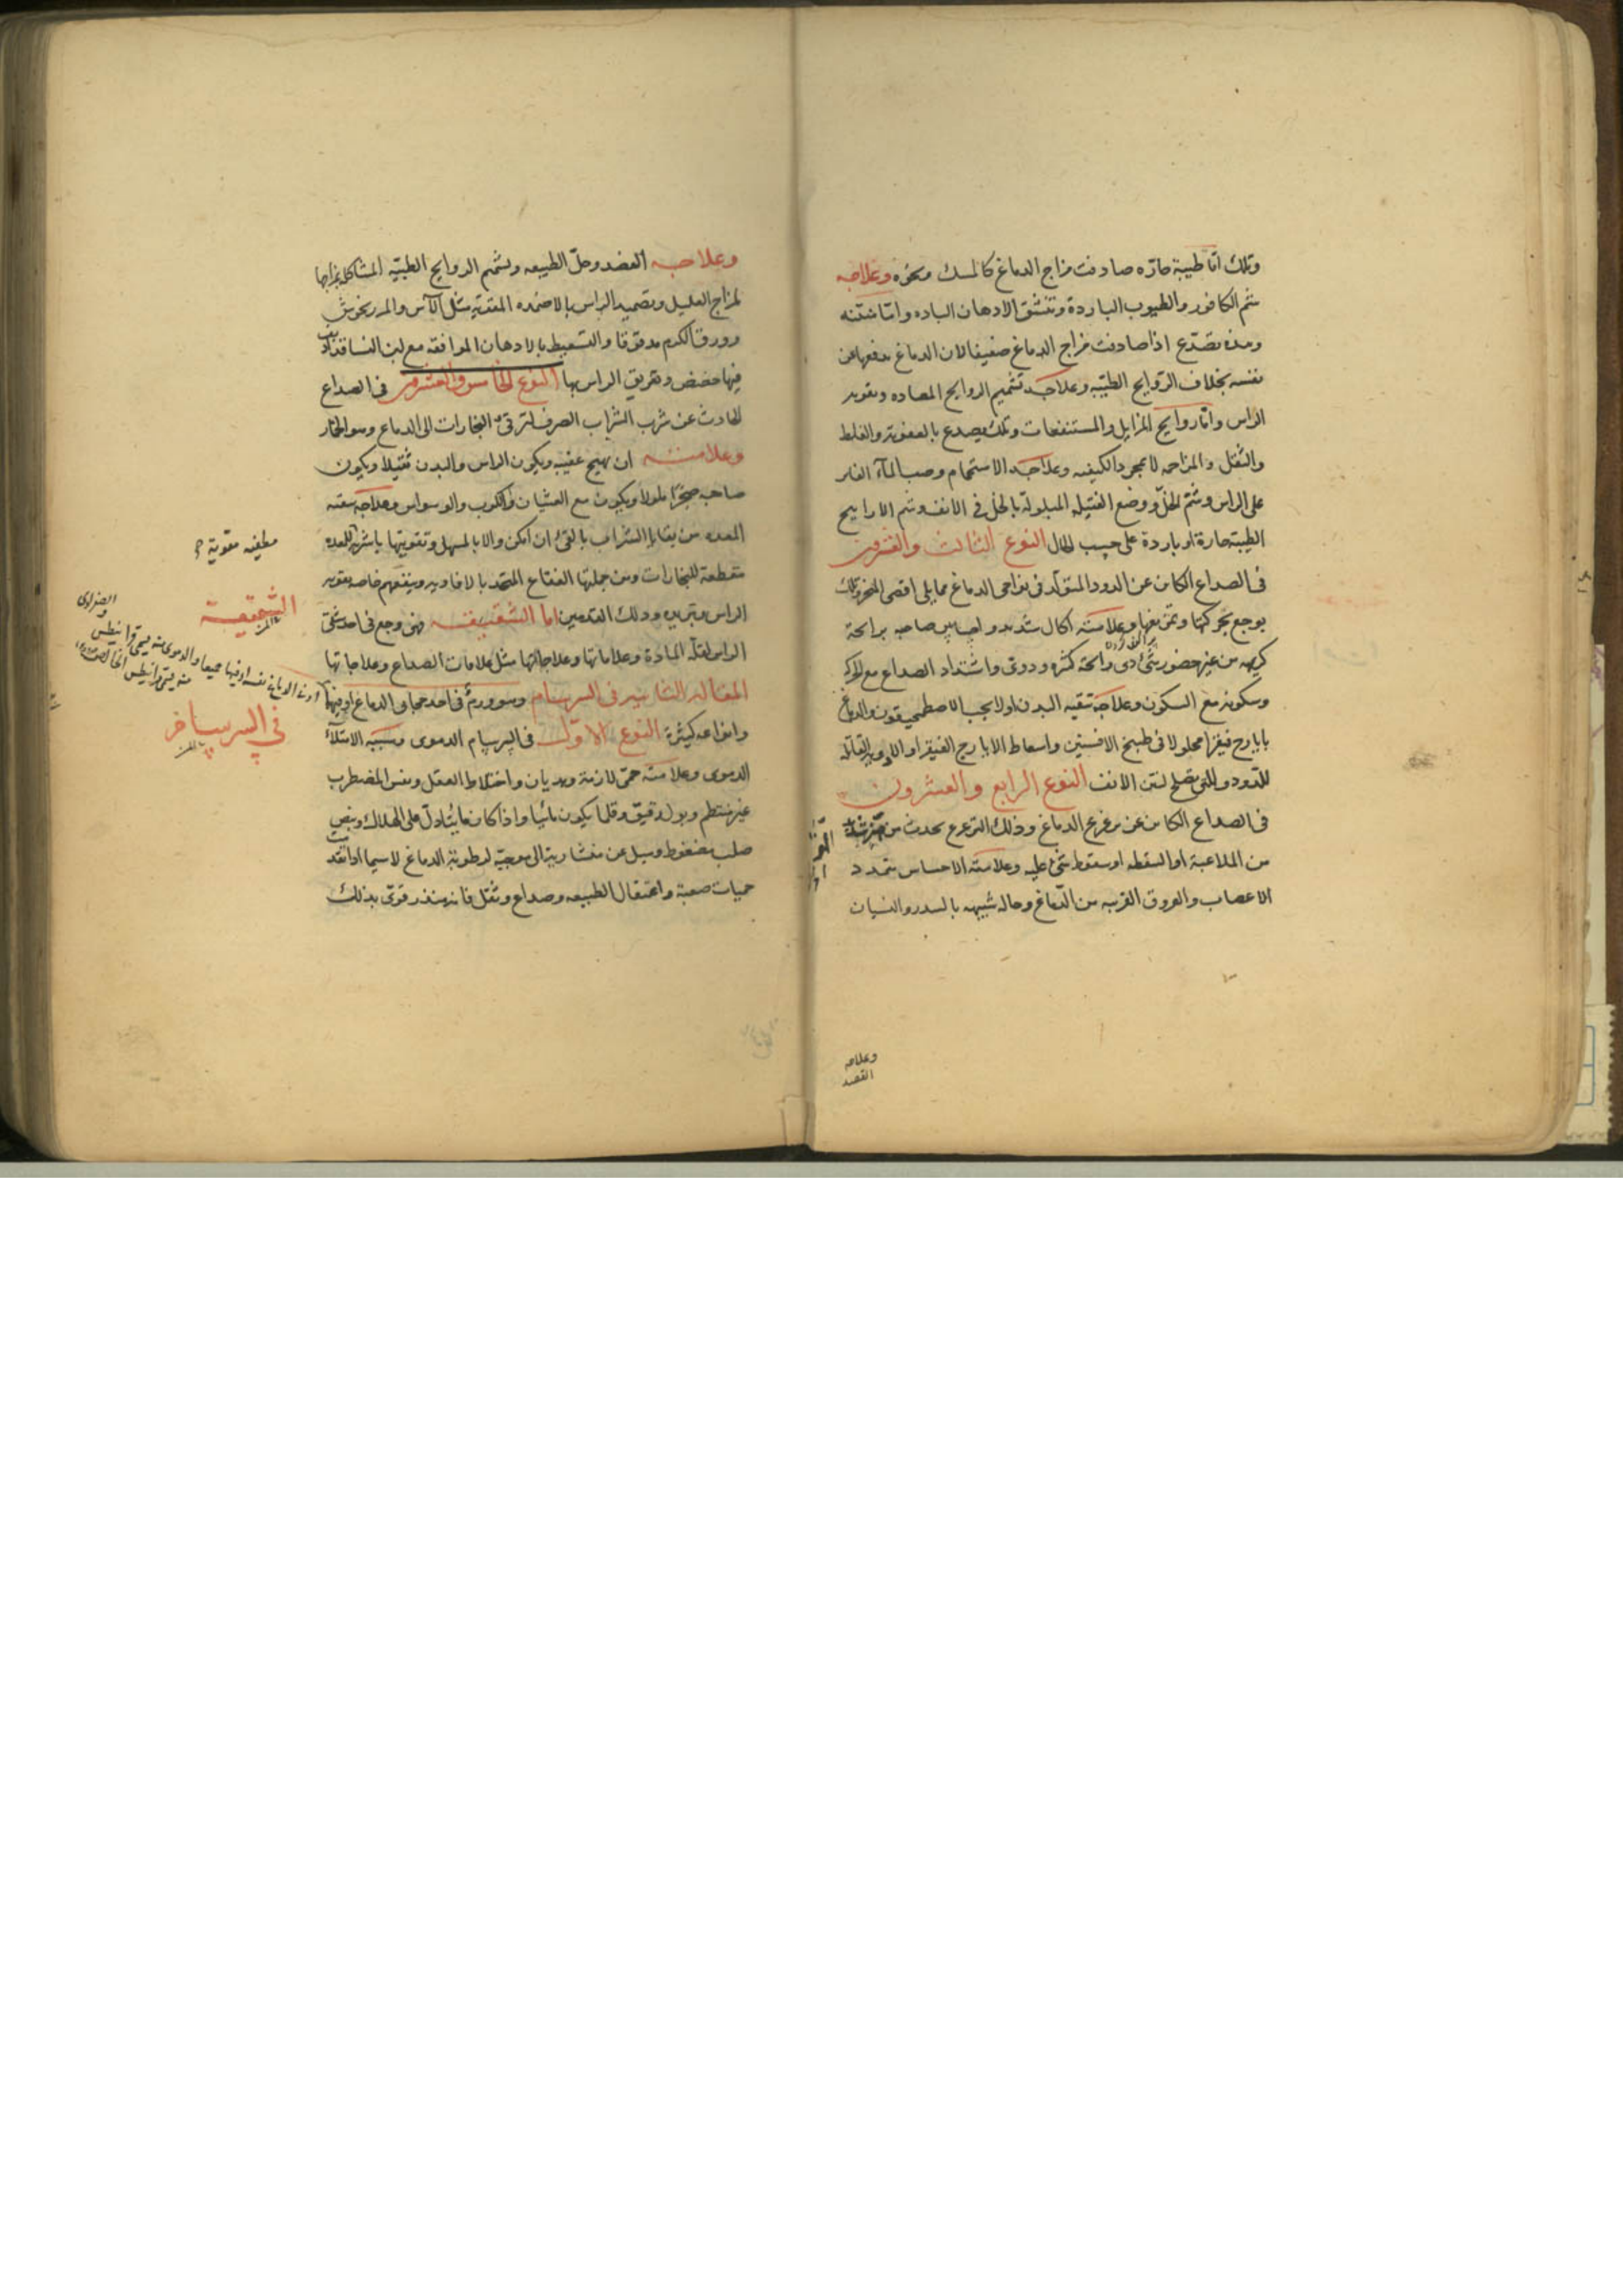 وتلك اما طيبة حارّه صادفت مزاج الدماغ كالمسك ونحوه وعلاجه
شم الكافور والطيوب الباردة وتنشق الادهان البارده واما منتنه
وهذه تصدّع اذا صادفت مزاج الدماغ ضعيفا لان الدماغ يدفعها عن
نفسه بخلاف الروايح الطيّبه وعلاجه تشميم الروايح المضاده وتقويه
الراس واما روايح المزابل والمستنقعات وتلك يصدع بالعفونة والغلظ
والثقل والمزاحمه لا بمجرد الكيفيه وعلاجه الاستحمام وصب المآء الفاتر
على الراس وشمّ الخلّ ووضع الفتيله المبلولة بالخل في الانف وشم الاراييح
الطيبة حارة او باردة على حسب الحال النوع الثالث والعشرون
في الصداع الكاين عن الدود المتولّد في نواحى الدماغ مما يلى اقصى المنخر وتلك
يوجع بحركتها وتمزيقها وعلامته اكال شديد واحساس صاحبه برائحة
كريهه من غير حضور شئ ذى رائحة كثره ودوى واشتداد الصداع مع الحركه
وسكونه مع السكون وعلاجه تنقيه البدن اولا بحب الاصطمحيقون والدماغ
بايارج فيقرا محلولا في طبيخ الافسنتين واسعاط الايارج الفيقرا والادويه القاتله
للدود والتى تصلح لنتن الانف النوع الرابع والعشرون
في الصداع الكاين عن تزعزع الدماغ وذلك التزعزع يحدث من
من الملاعبة او السقطه او سقوط شئ عليه وعلامته الاحساس بتمدد
الاعصاب والعروق القريبه من الدّماغ وحاله شبيهه بالسدر والنسيان
وعلاجه
الفصد
وعلاجه الفصد وحلّ الطبيعه وشم الروايح الطيبّه المشاكله بمزاجها
لمزاج العليل وتضميد الراس بالاضمده المقويه مثل الآس والمرزنجوش
وورق الكرم مدقوقا والتسعيط بالادهان الموافقه مع لبن النسا قد اديف
فيها حضض وتعريق الراس بها النوع الخامس والعشرون في الصداع
الحادث عن شرب الشراب الصرف لترقى البخارات الى الدماغ وهو الخمار
وعلامته ان يهيج عقيبه ويكون الراس والبدن ثقيلا ويكون
صاحبه ضجرا ملولا ويكون مع الغثيان والكرب والوسواس وعلاجه تنقيه
المعده من بقايا الشراب بالقئ ان امكن والا بالمسهل وتقويتها باشربه للمعده
مقطعة للبخارات ومن جملتها الفقاع المتخذ بالافاويه وينفعهم خاصه تقويه
الراس وتبريده ودلك القدمين اما الشقيقه فهى وجع في احد شقى
الراس لقلّه المادة وعلاماتها وعلاجاتها مثل علامات الصداع وعلاجاتها
المقاله الثانيه في السرسام وهو ورم في احد حجابى الدماغ او فيهما
وانواعه كثيرة النوع الاوّل في السرسام الدموى وسببه الامتلآء
الدموى وعلامته حمّى لازمة وهذيان واختلاط العقل ونفس المضطرب
غير منتظم وبول رقيق وقلما يكون مائيا واذا كان مائيا دلّ على الهلاك ونبض
صلب مضغوط وميل عن منشارية الى موجيّة لرطوبة الدماغ لاسيما اذا تقدمت
حميات صعبة واعتقال الطبيعه وصداع وثقل فانه ينذر قوىّ بذلك
مطفيه مقوية
الشقيقة
في السرسام